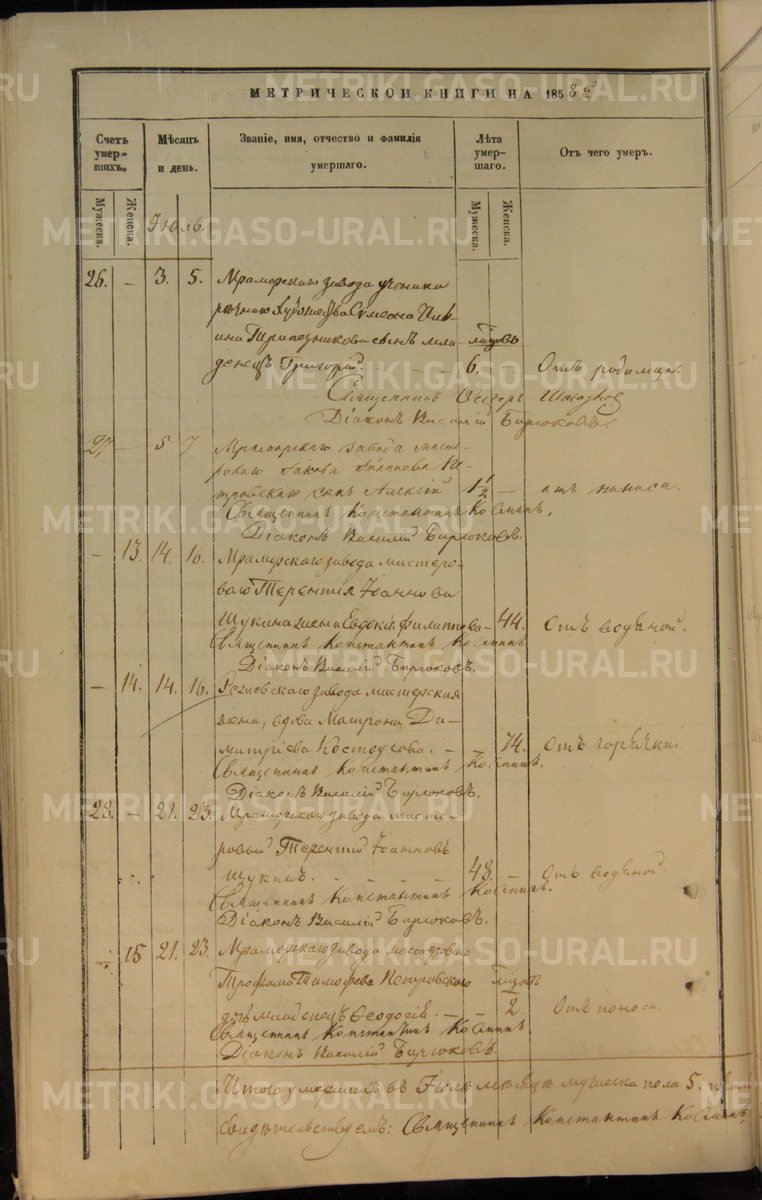 МЕТРИЧЕСКОЙ КНИГИ НА 1858й
Счетъ умершихъ.
Мѣсяцъ и день.
Званіе, имя, отчество и фамилія умершаго.
Лѣта умершаго.
Отъ чего умеръ.
Мужеска.
Женска.
Мужеска.
Женска.
Іюль.
26. - 3. 5. Мраморскаго завода ученика
Симеона Иль-
ина сынъ мла-
денецъ Григорій. 6. - Отъ родимца.
Священникъ
Діаконъ Василій Бирюковъ.
27 - 5 7 Мраморскаго завода масте-
роваго Пе-
тровскаго сынъ Алексій 1 1/2 - отъ поноса.
Священникъ Константинъ Косминъ.
Діаконъ Василій Бирюковъ.
- 13. 14. 16. Мраморскаго завода мастеро-
ваго Терентія Іоаннова
Щукина жена Евдокія Филиппова - 44. Отъ водяной.
Священникъ Константинъ Косминъ
Діаконъ Василій Бирюковъ.
- 14. 14. 16. завода мастерская
жена, вдова Матрона Ди-
митріева Костоусова. - - 74. Отъ горячки.
Священникъ Константинъ Косминъ.
Діаконъ Василій Бирюковъ.
28. - 21. 23. Мраморскаго завода масте-
ровый Терентій Іоанновъ
Щукинъ. 48. - Отъ водяной
Священникъ Константинъ Косминъ.
Діаконъ Василій Бирюковъ.
- 15 21. 23. Мраморскаго завода мастероваго
Трофима Тимофеева Петровскаго
младенецъ Ѳеодосія. - - 2. Отъ поноса.
Священникъ Константинъ Косминъ.
Діаконъ Василій Бирюковъ.
Итого умершихъ въ Іюль мѣсяцѣ мужеска пола 5.
свидѣтельствуемъ: Священникъ Константинъ Косминъ.
METRIKI.GASO-URAL.RU